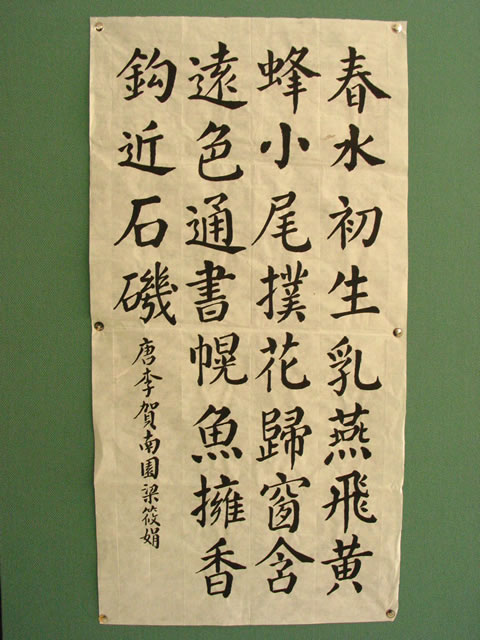 春水初生乳燕飛黄
蜂小尾撲花歸窗含
遠色通書幌魚擁香
鈎近石磯
唐李賀南園梁筱娟